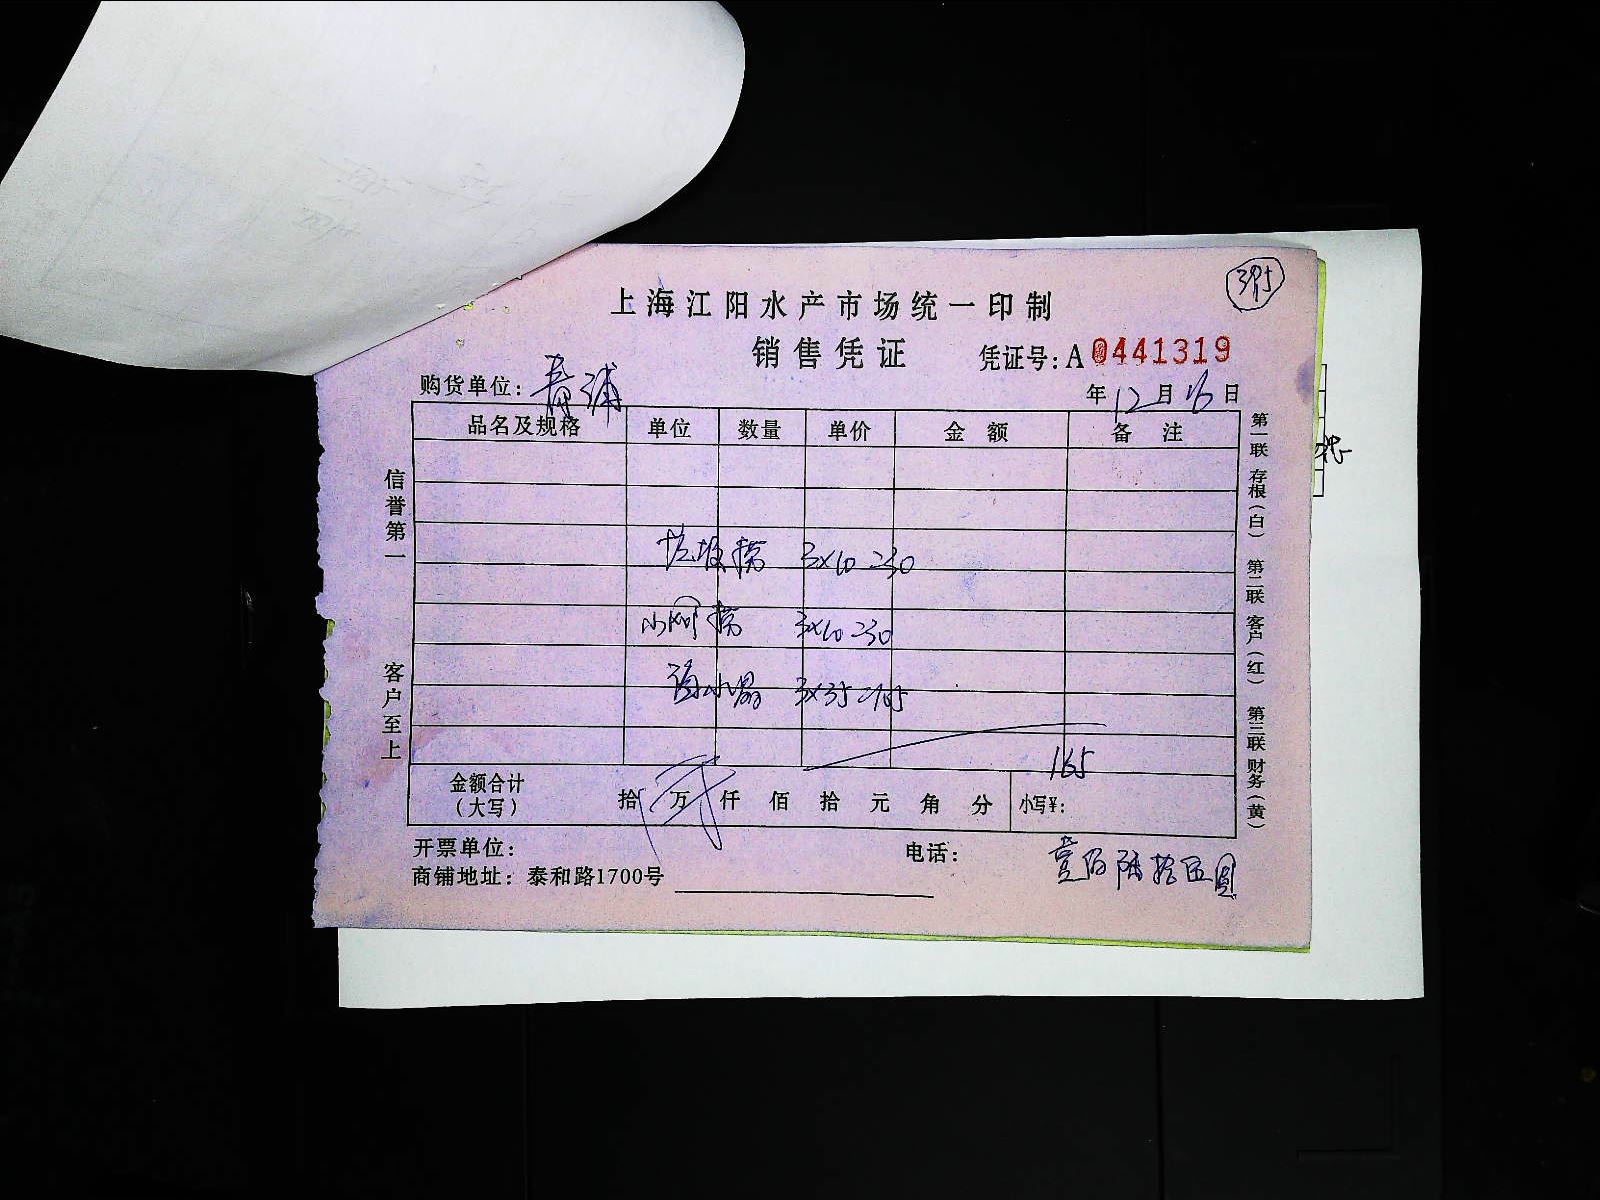 395
上海江阳水产市场统一印制
销售凭证
凭证号: A 0441319
购货单位: 青浦
年 12 月 16 日
品名及规格 单位 数量 单价 金额 备注
垃圾捞 3×10=30
小网捞 3×10=30
3×35=105
165
金额合计
(大写)
拾 万 仟 佰 拾 元 角 分 小写¥:
开票单位: 电话:
壹佰陆拾伍圆
商铺地址: 泰和路1700号
信誉第一
客户至上
第一联 存根(白) 第二联 客户(红) 第三联 财务(黄)